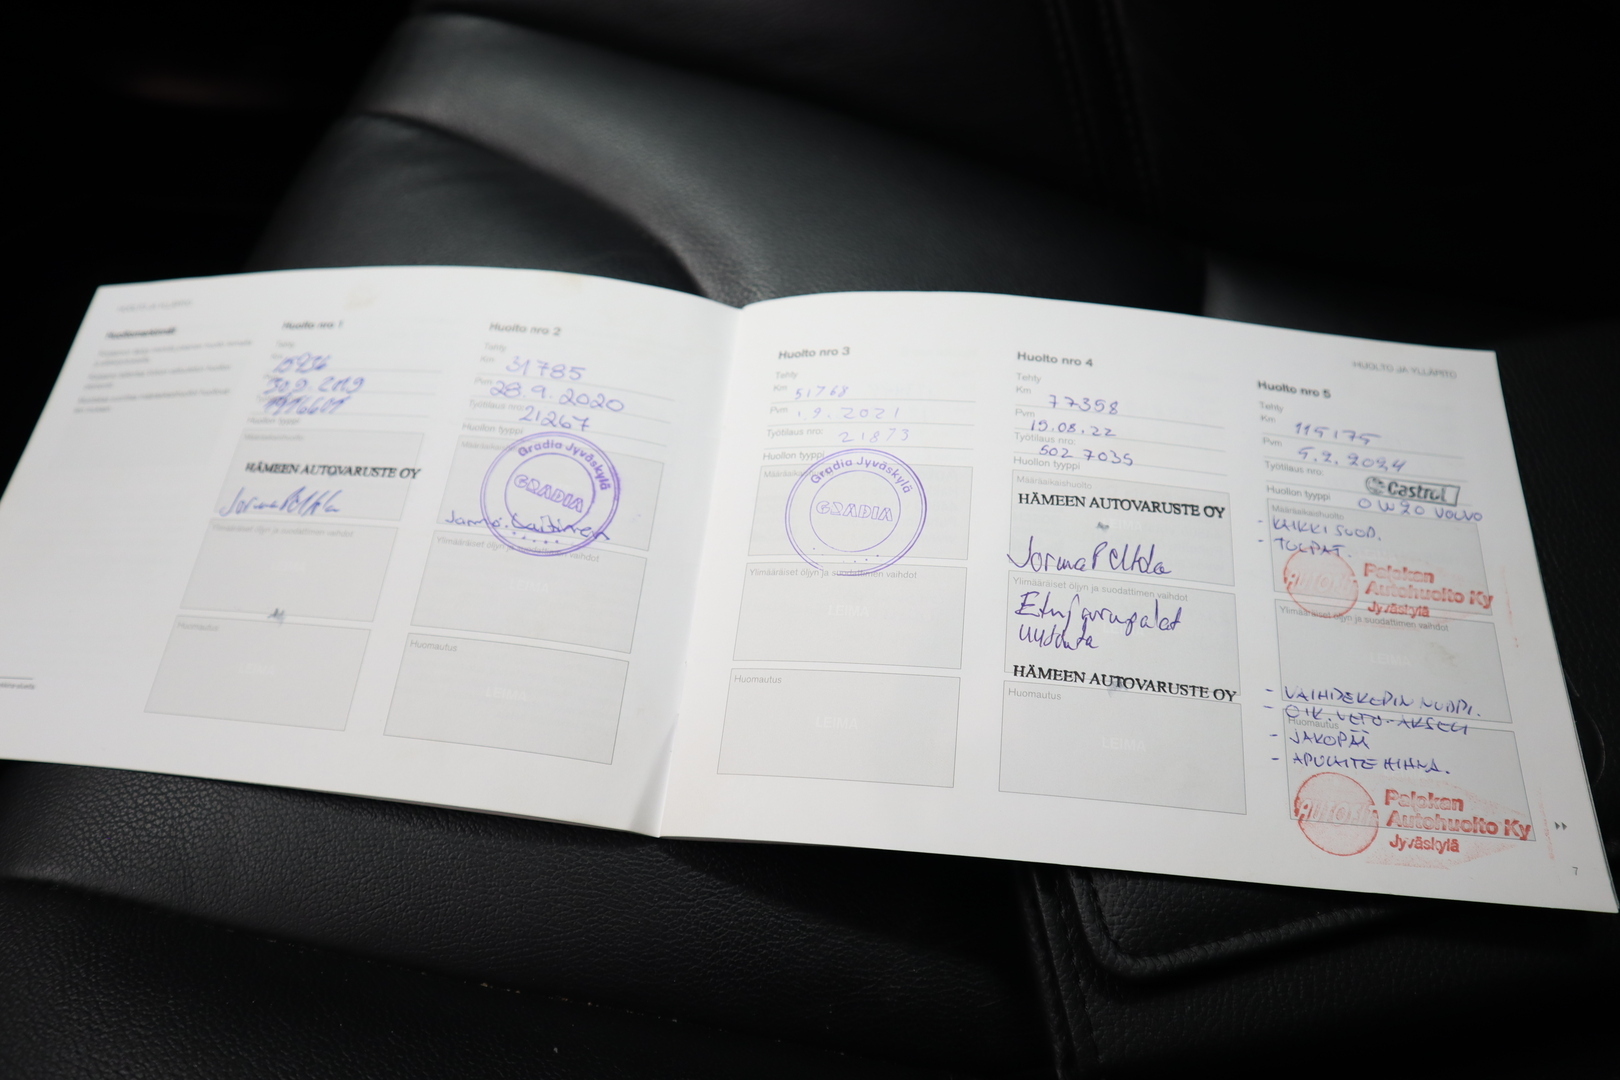 HUOLTO JA YLLÄPITO
Huoltomerkinnät
Huolto nro 1
Tehty
Km
30.9.2019
Huollon tyyppi
Määräaikaishuolto
HÄMEEN AUTOVARUSTE OY
Ylimääräiset öljyn ja suodattimen vaihdot
Huomautus
Huolto nro 2
Tehty
Km 31785
Pvm 28.9.2020
Työtilaus nro: 21267
Huollon tyyppi
Gradia Jyväskylä
GRADIA
Ylimääräiset öljyn ja suodattimen vaihdot
Huomautus
LEIMA
Huolto nro 3
Tehty
Km 51768
Pvm 1.9.2021
Työtilaus nro: 21873
Huollon tyyppi
Gradia Jyväskylä
GRADIA
Ylimääräiset öljyn ja suodattimen vaihdot
LEIMA
Huomautus
LEIMA
Huolto nro 4
Tehty
Km 77358
Pvm 15.08.22
Työtilaus nro: 502 7035
Huollon tyyppi
Määräaikaishuolto
HÄMEEN AUTOVARUSTE OY
Ylimääräiset öljyn ja suodattimen vaihdot
Etujarrupalat
uudet
HÄMEEN AUTOVARUSTE OY
Huomautus
LEIMA
HUOLTO JA YLLÄPITO
Huolto nro 5
Tehty
Km 115175
Pvm 5.2.2024
Työtilaus nro:
Castrol
Huollon tyyppi 0W20 VOLVO
Määräaikaishuolto
- KAIKKI SUOD.
- TULPAT.
Palokan
Autohuolto Ky
Jyväskylä
Ylimääräiset öljyn ja suodattimen vaihdot
LEIMA
- VAIHDEKEPIN NUPPI.
- OIK. VETO-AKSELI
Huomautus
- JAKOPÄÄ
- APULAITE HIHNA.
Palokan
Autohuolto Ky
Jyväskylä
7